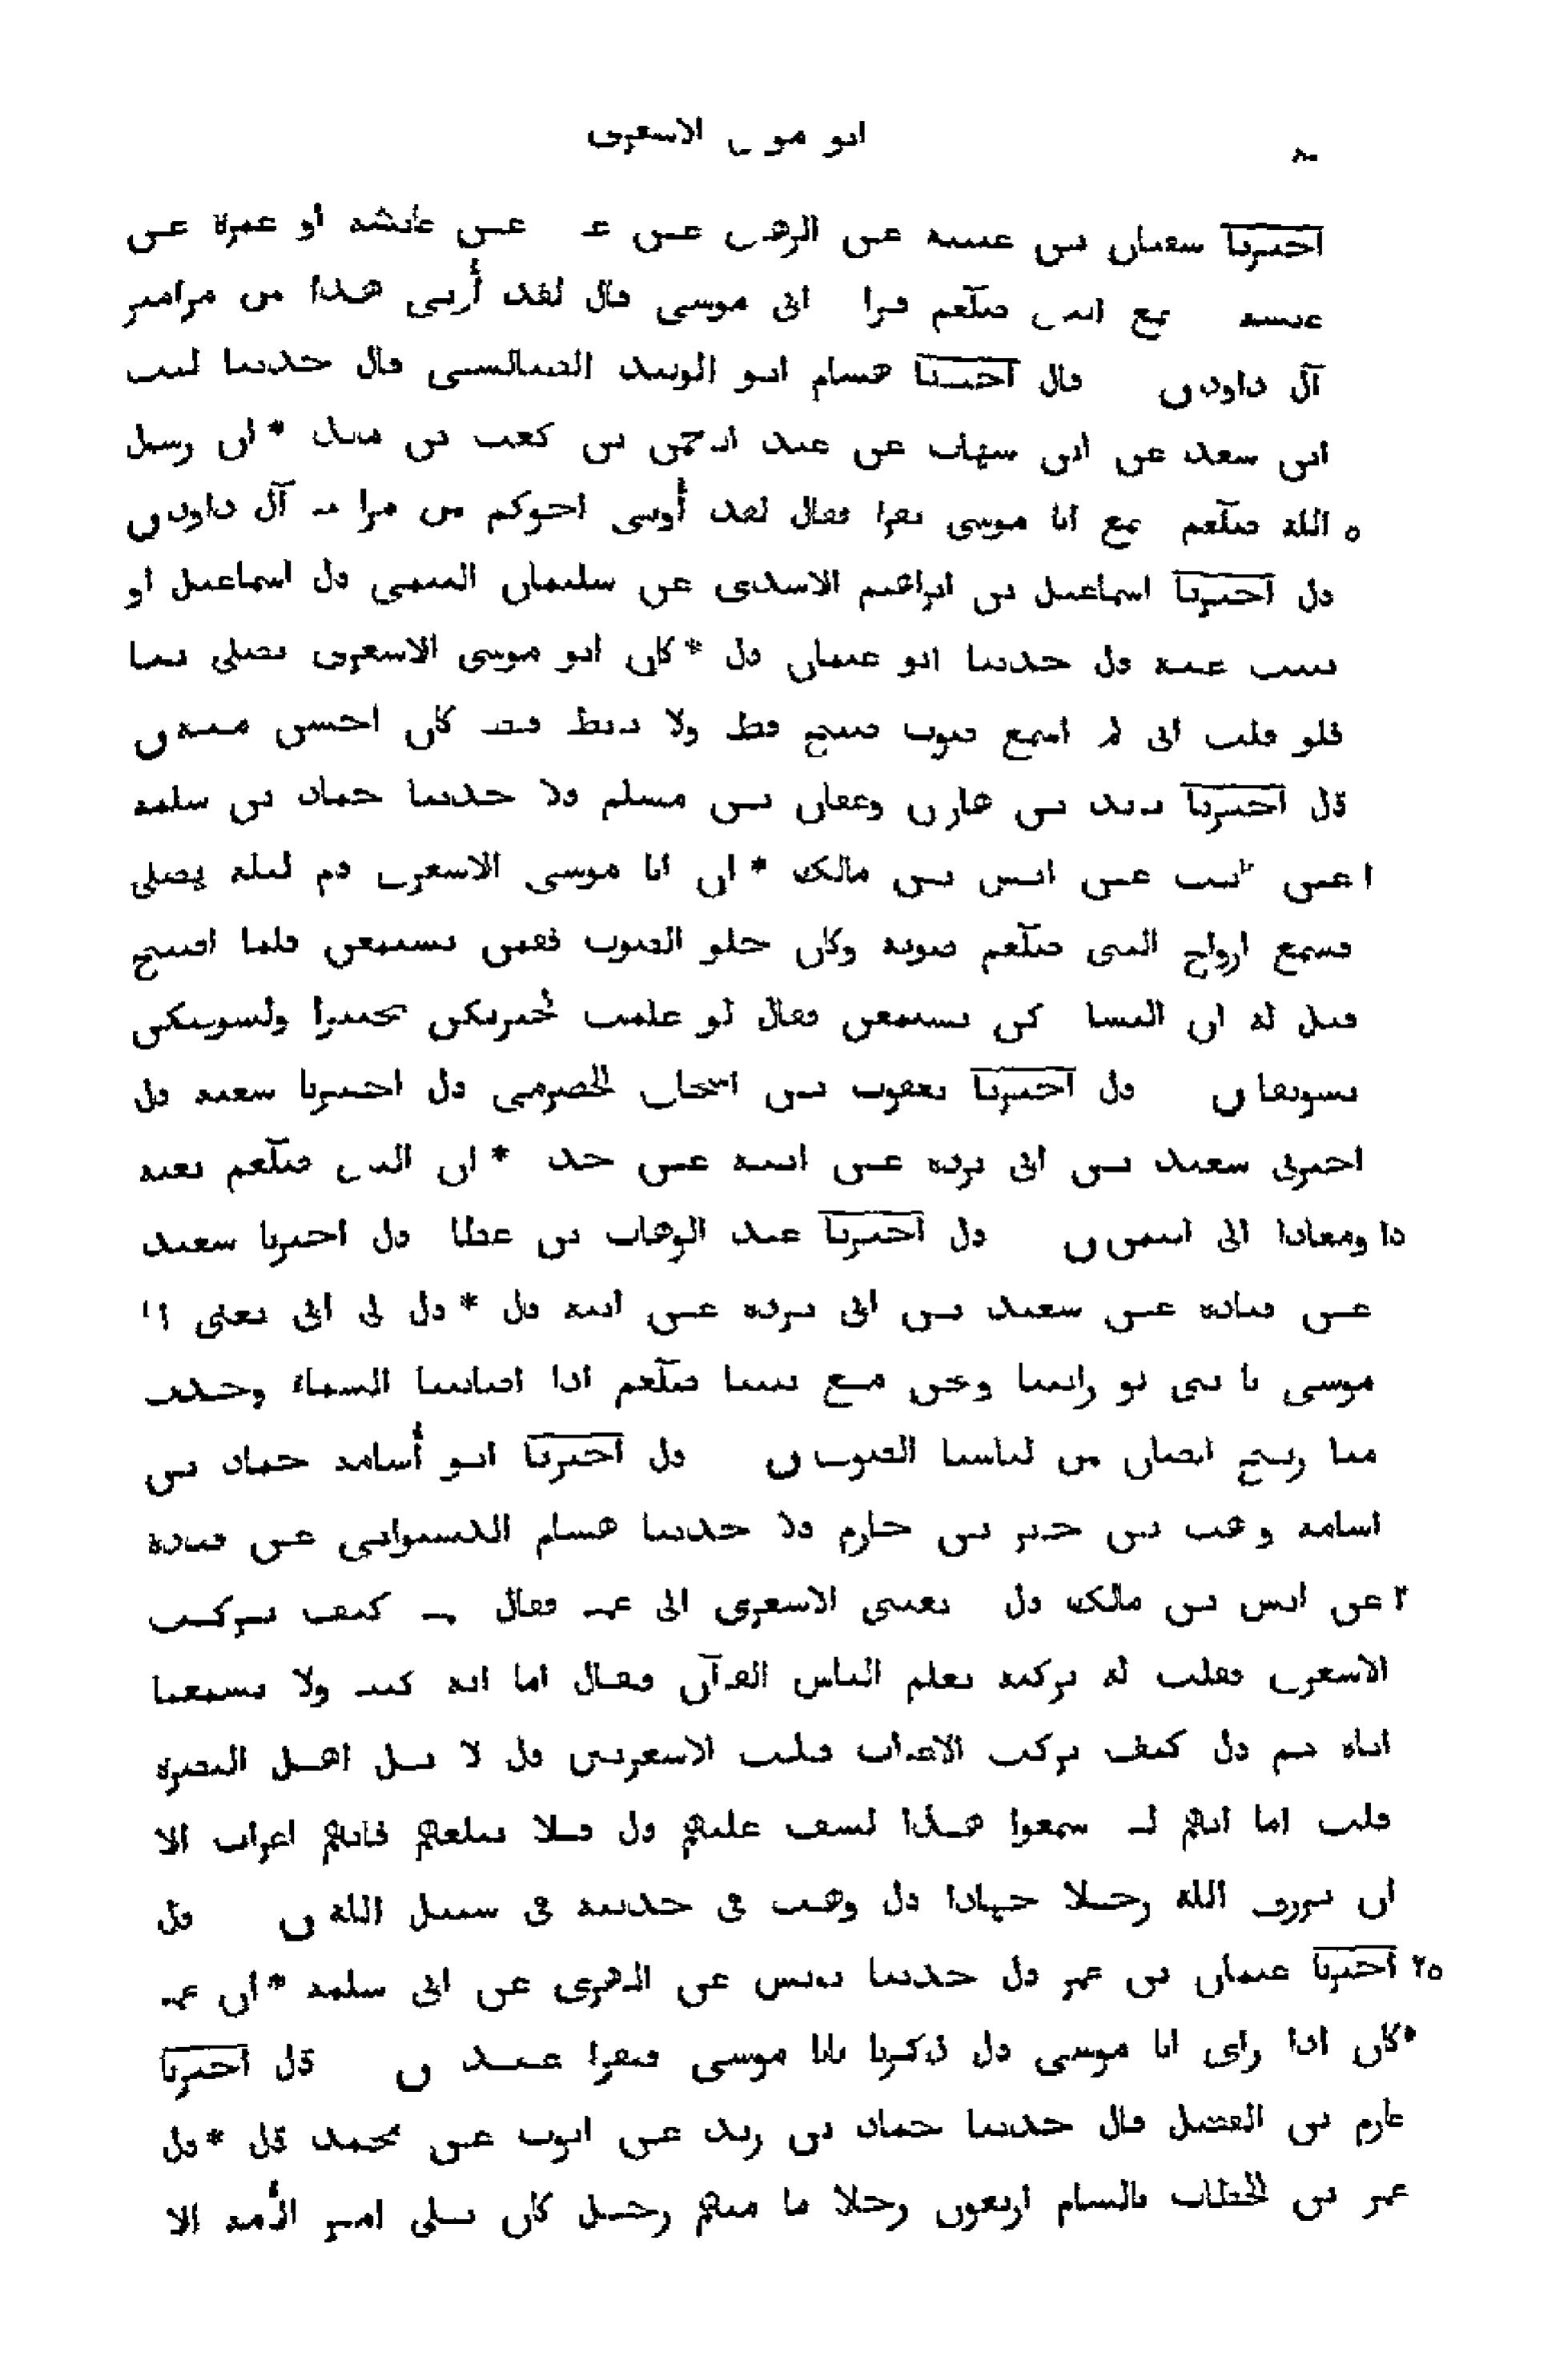 ابو موسى الاشعرى
٨٠
اخبرنا سفيان بن عيينة عن الزهرى عن عن عائشة او عمرة عن
عائشة سمع النبى صلّعم قراءة ابى موسى فقال لقد أُوتى هذا من مزامير
آل داود ن قال اخبرنا هشام ابو الوليد الطيالسى قال حدثنا ليث
ابن سعد عن ابن شهاب عن عبد الرحمن بن كعب بن مالك * ان رسول
٥ الله صلّعم سمع ابا موسى يقرأ فقال لقد أُوتى اخوكم من مزامير آل داود ن
قال اخبرنا اسماعيل بن ابراهيم الاسدى عن سليمان التيمى قال اسماعيل او
نبئت عنه قال حدثنا ابو عثمان قال * كان ابو موسى الاشعرى يصلى بنا
فلو قلت انى لم اسمع صوت صنج قط ولا بربط قط كان احسن منه ن
قال اخبرنا يزيد بن هارون وعفان بن مسلم قالا حدثنا حماد بن سلمة
١٠ عن ثابت عن انس بن مالك * ان ابا موسى الاشعرى قام ليلة يصلى
فسمع ازواج النبى صلّعم صوته وكان حلو الصوت فقمن يستمعن فلما اصبح
قيل له ان النساء كن يستمعن فقال لو علمت لحبرتكن تحبيرا ولشوقتكن
تشويقا ن قال اخبرنا يعقوب بن اسحاق الحضرمى قال اخبرنا شعبة قال
اخبرنى سعيد بن ابى بردة عن ابيه عن جده * ان النبى صلّعم بعثه
١٥ ومعاذا الى اليمن ن قال اخبرنا عبد الوهاب بن عطاء قال اخبرنا سعيد
عن قتادة عن سعيد بن ابى بردة عن ابيه قال * قال لى ابى يعنى ابا
موسى يا بنى لو رايتنا ونحن مع نبينا صلّعم اذا اصابتنا السماء وجدت
منا ريح الضان من لباسنا الصوف ن قال اخبرنا ابو أسامة حماد بن
اسامة ووهب بن جرير بن حازم قالا حدثنا هشام الدستوائى عن قتادة
٢٠ عن انس بن مالك قال بعثنى الاشعرى الى عمر فقال عمر كيف تركت
الاشعرى فقلت له تركته يعلم الناس القرآن فقال اما انه كيس ولا تسمعها
اياه ثم قال كيف تركت الاعراب قلت الاشعريين قال لا بل اهل البصرة
قلت اما انهم لو سمعوا هذا لشق عليهم قال فلا تبلغهم فانهم اعراب الا
ان يرزق الله رجلا جهادا قال وهب فى حديثه فى سبيل الله ن قال
٢٥ اخبرنا عثمان بن عمر قال حدثنا يونس عن الزهرى عن ابى سلمة * ان عمر
كان اذا راى ابا موسى قال ذكرنا يابا موسى فيقرأ عنده ن قال اخبرنا
عارم بن الفضل قال حدثنا حماد بن زيد عن ايوب عن محمد قال * قال
عمر بن الخطاب بالشام اربعون رجلا ما منهم رجل كان يلى امر الأمة الا